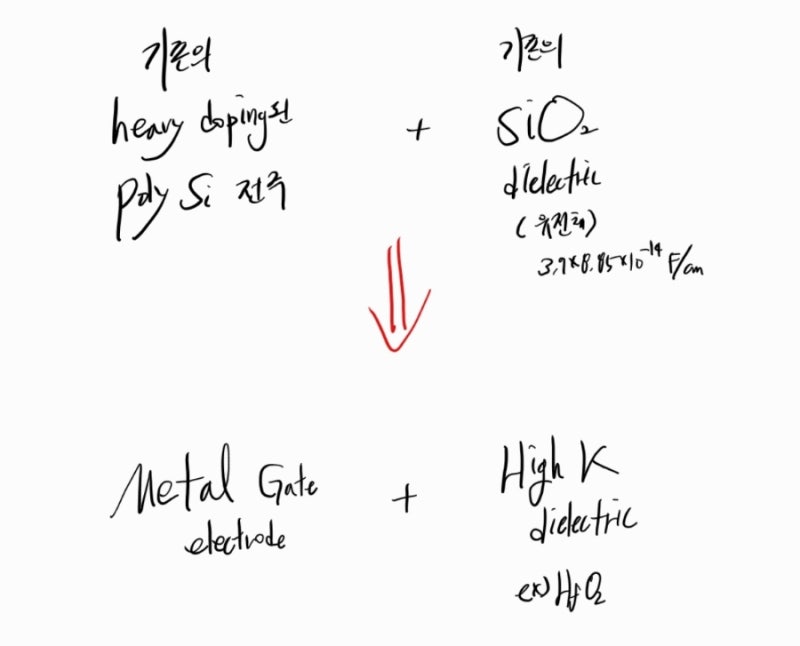 기존의
heavy doping된
poly Si 전극
+
기존의
SiO₂
dielectric
(유전체)
3.9×8.85×10⁻¹⁴ F/cm
Metal Gate
electrode
+
High K
dielectric
ex) HfO₂